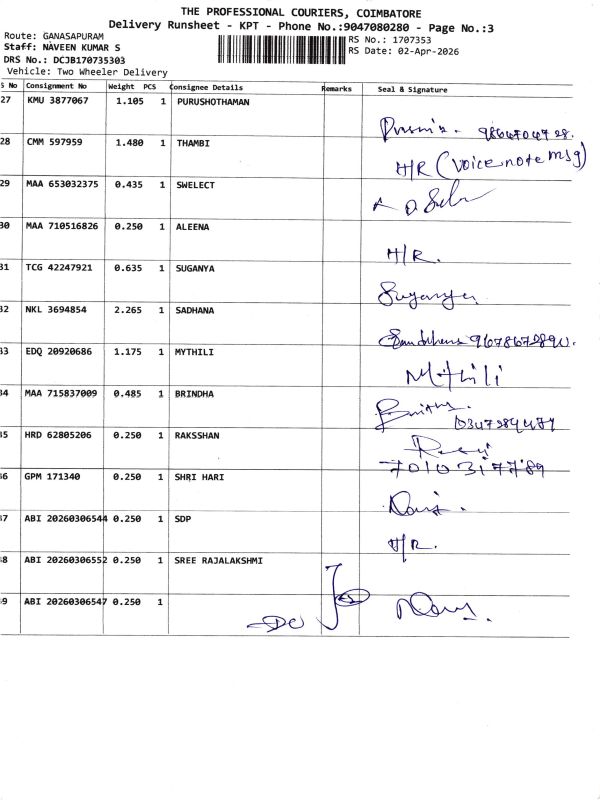 THE PROFESSIONAL COURIERS, COIMBATORE
Delivery Runsheet - KPT - Phone No.:9047080280 - Page No.:3
Route: GANASAPURAM
RS No.: 1707353
Staff: NAVEEN KUMAR S
RS Date: 02-Apr-2026
DRS No.: DCJB170735303
Vehicle: Two Wheeler Delivery
S No Consignment No Weight PCS Consignee Details Remarks Seal & Signature
27 KMU 3877067 1.105 1 PURUSHOTHAMAN
28 CMM 597959 1.480 1 THAMBI
H/R (voice note msg)
29 MAA 653032375 0.435 1 SWELECT
30 MAA 710516826 0.250 1 ALEENA
H/R.
31 TCG 42247921 0.635 1 SUGANYA
Suganya
32 NKL 3694854 2.265 1 SADHANA
33 EDQ 20920686 1.175 1 MYTHILI
Mithili
34 MAA 715837009 0.485 1 BRINDHA
35 HRD 62805206 0.250 1 RAKSSHAN
7010317789
36 GPM 171340 0.250 1 SHRI HARI
37 ABI 20260306544 0.250 1 SDP
H/R.
38 ABI 20260306552 0.250 1 SREE RAJALAKSHMI
39 ABI 20260306547 0.250 1